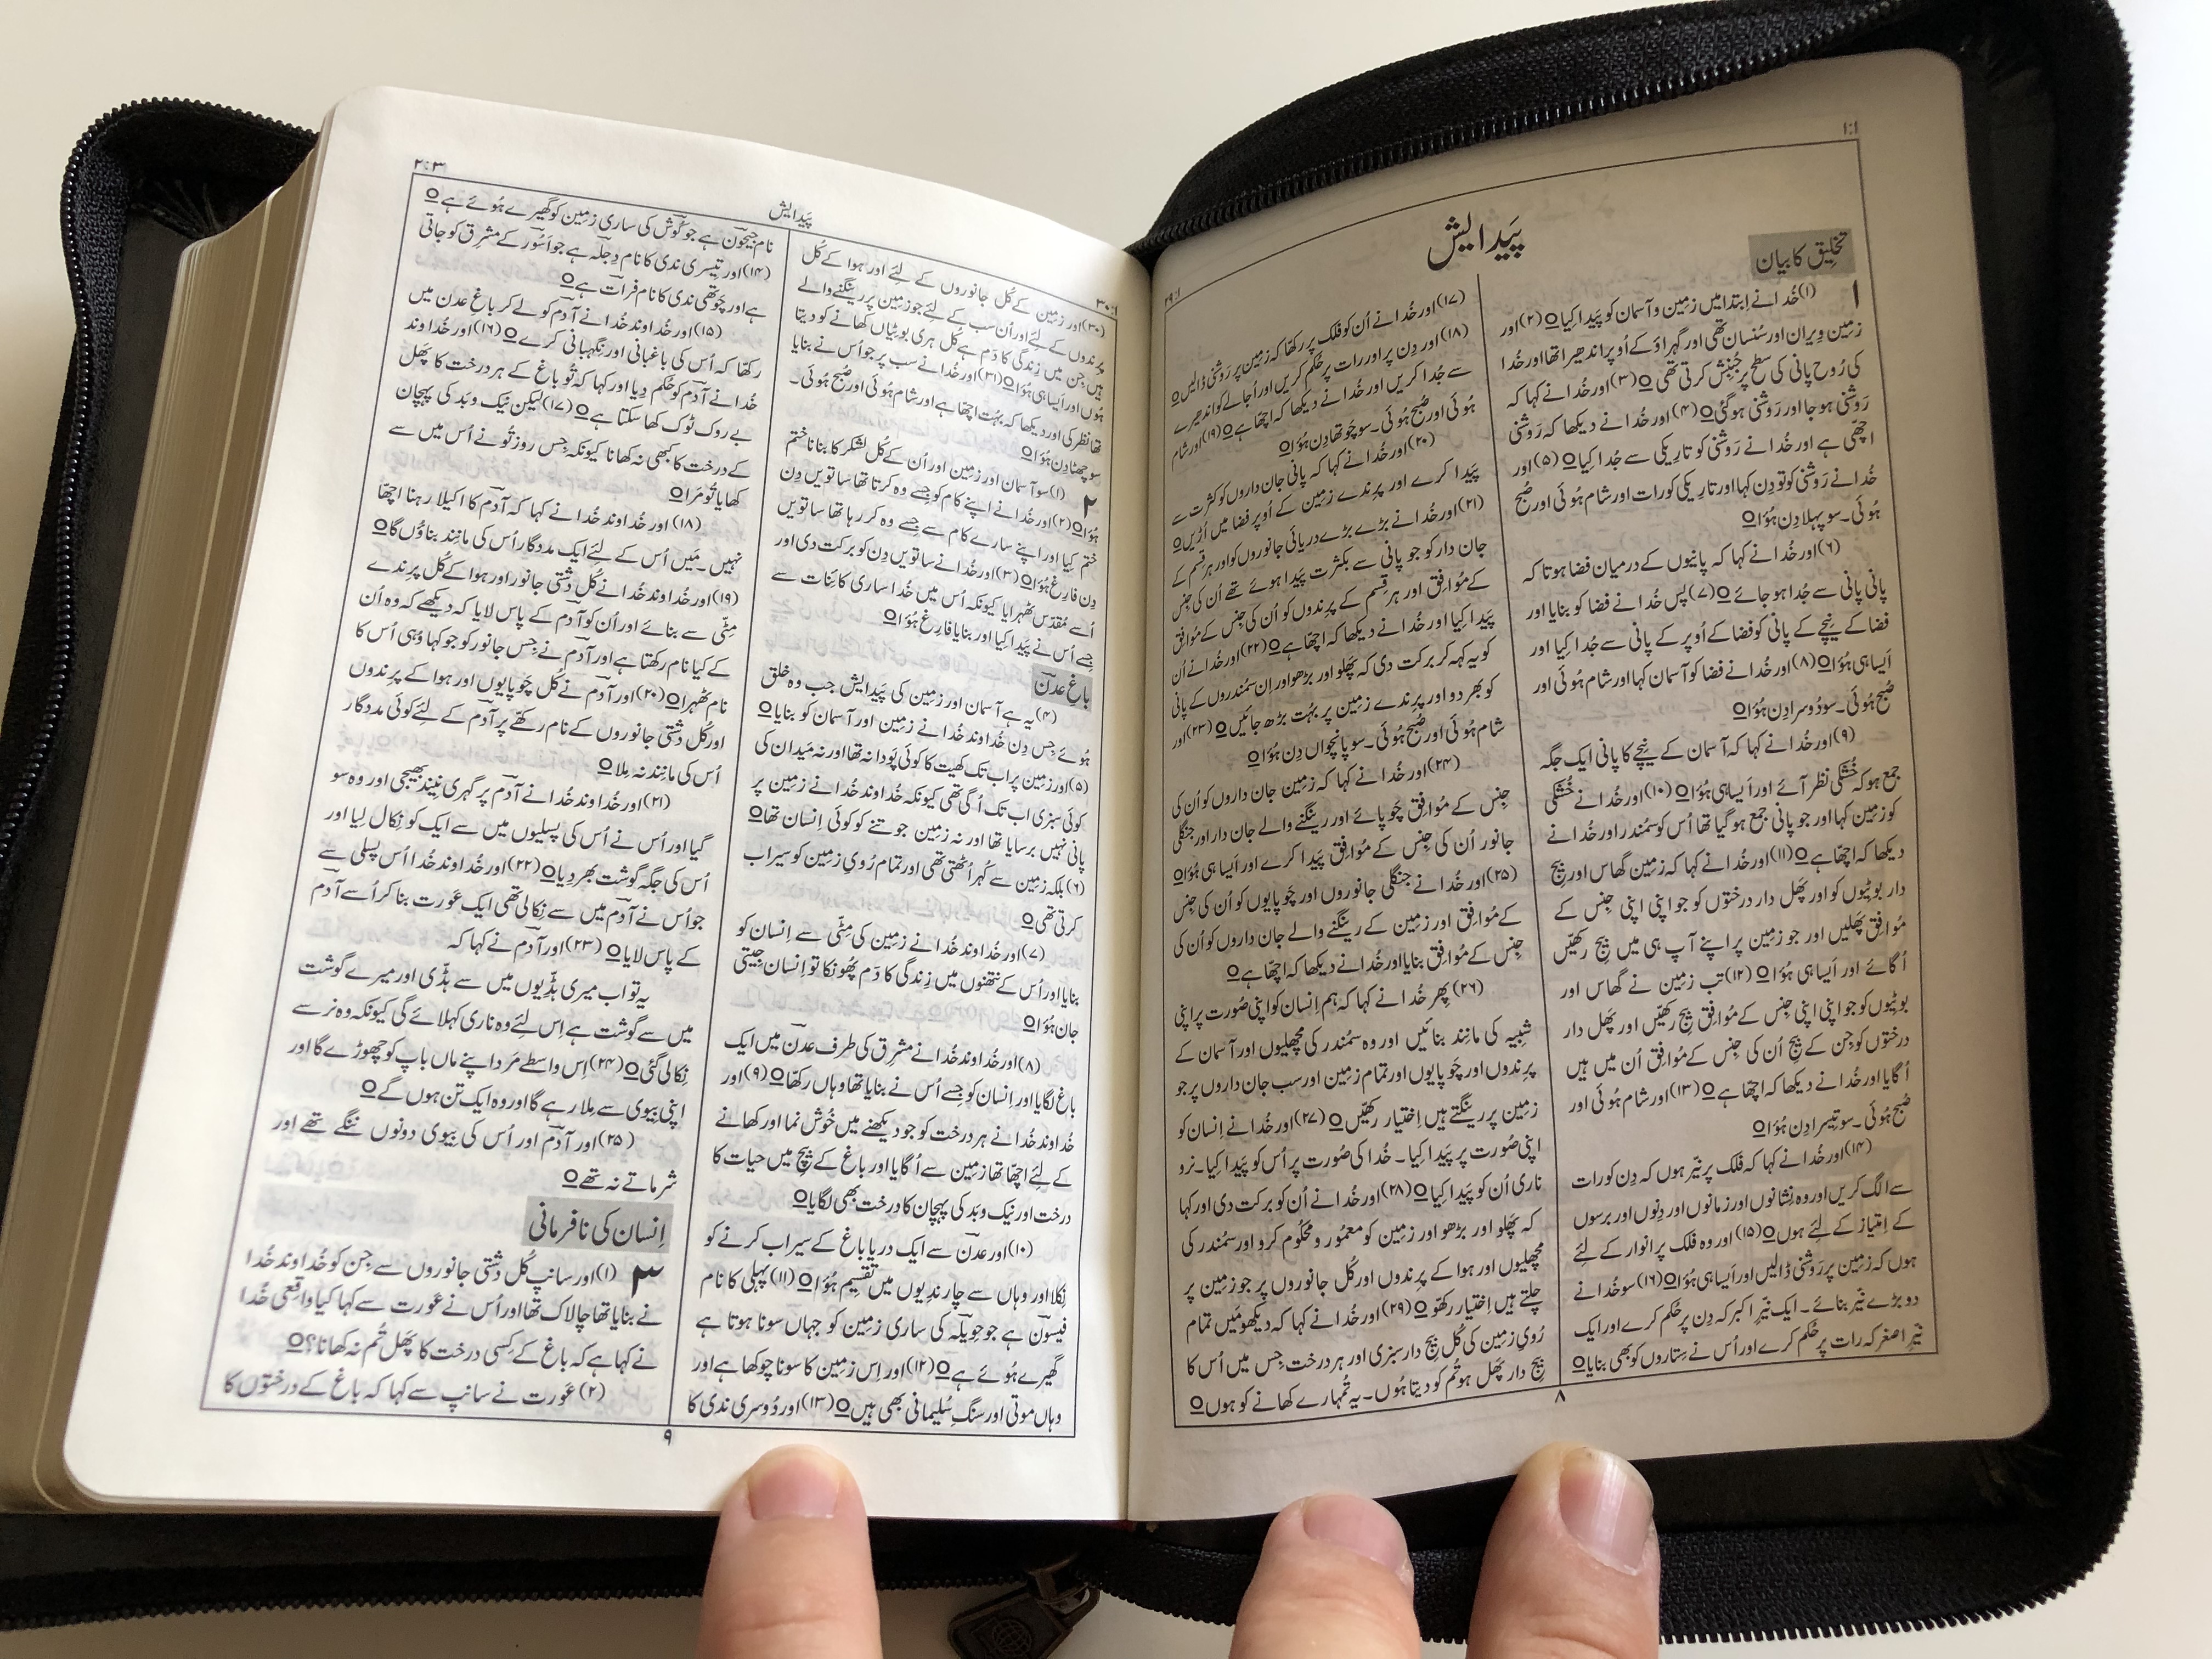 ۱:۱
پَیدایش
تخلِیق کا بیان
۱ (۱) خُدا نے اِبتدا میں زمِین و آسمان کو پَیدا کِیا O (۲) اور
زمِین وِیران اور سُنسان تھی اور گہراؤ کے اُوپر اندھیرا تھا اور خُدا
کی رُوح پانی کی سطح پر جُنبِش کرتی تھی O (۳) اور خُدا نے کہا کہ
رَوشنی ہو جا اور رَوشنی ہو گئی O (۴) اور خُدا نے دیکھا کہ رَوشنی
اچّھی ہے اور خُدا نے رَوشنی کو تارِیکی سے جُدا کِیا O (۵) اور
خُدا نے رَوشنی کو تو دِن کہا اور تارِیکی کو رات اور شام ہُوئی اور صُبح
ہُوئی ۔ سو پہلا دِن ہُؤا O
(۶) اور خُدا نے کہا کہ پانیوں کے درمیان فضا ہو تا کہ
پانی پانی سے جُدا ہو جائے O (۷) پس خُدا نے فضا کو بنایا اور
فضا کے نِیچے کے پانی کو فضا کے اُوپر کے پانی سے جُدا کِیا اور
اَیسا ہی ہُؤا O (۸) اور خُدا نے فضا کو آسمان کہا اور شام ہُوئی اور
صُبح ہُوئی ۔ سو دُوسرا دِن ہُؤا O
(۹) اور خُدا نے کہا کہ آسمان کے نِیچے کا پانی ایک جگہ
جمع ہو کہ خُشکی نظر آئے اور اَیسا ہی ہُؤا O (۱۰) اور خُدا نے خُشکی
کو زمِین کہا اور جو پانی جمع ہو گیا تھا اُس کو سمُندر اور خُدا نے
دیکھا کہ اچّھا ہے O (۱۱) اور خُدا نے کہا کہ زمِین گھاس اور بِیج
دار بوٹیوں کو اور پَھل دار درختوں کو جو اپنی اپنی جِنس کے
مُوافِق پَھلیں اور جو زمِین پر اپنے آپ ہی میں بِیج رکھّیں
اُگائے اور اَیسا ہی ہُؤا O (۱۲) تب زمِین نے گھاس اور
بوٹیوں کو جو اپنی اپنی جِنس کے مُوافِق بِیج رکھّیں اور پَھل دار
درختوں کو جِن کے بِیج اُن کی جِنس کے مُوافِق اُن میں ہیں
اُگایا اور خُدا نے دیکھا کہ اچّھا ہے O (۱۳) اور شام ہُوئی اور
صُبح ہُوئی ۔ سو تِیسرا دِن ہُؤا O
(۱۴) اور خُدا نے کہا کہ فلک پر نیّر ہوں کہ دِن کو رات
سے الگ کریں اور وہ نِشانوں اور زمانوں اور دِنوں اور برسوں
کے اِمتیاز کے لِئے ہوں O (۱۵) اور وہ فلک پر انوار کے لِئے
ہوں کہ زمِین پر رَوشنی ڈالیں اور اَیسا ہی ہُؤا O (۱۶) سو خُدا نے
دو بڑے نیّر بنائے ۔ ایک نیّرِ اکبر کہ دِن پر حُکم کرے اور ایک
نیّرِ اصغر کہ رات پر حُکم کرے اور اُس نے سِتاروں کو بھی بنایا O
۲۹:۱
(۱۷) اور خُدا نے اُن کو فلک پر رکھّا کہ زمِین پر رَوشنی ڈالیں O
(۱۸) اور دِن پر اور رات پر حُکم کریں اور اُجالے کو اندھیرے
سے جُدا کریں اور خُدا نے دیکھا کہ اچّھا ہے O (۱۹) اور شام
ہُوئی اور صُبح ہُوئی ۔ سو چَوتھا دِن ہُؤا O
(۲۰) اور خُدا نے کہا کہ پانی جان داروں کو کثرت سے
پَیدا کرے اور پرِندے زمِین کے اُوپر فضا میں اُڑیں O
(۲۱) اور خُدا نے بڑے بڑے دریائی جانوروں کو اور ہر قِسم کے
جان دار کو جو پانی سے بکثرت پَیدا ہُوئے تھے اُن کی جِنس
کے مُوافِق اور ہر قِسم کے پرِندوں کو اُن کی جِنس کے مُوافِق
پَیدا کِیا اور خُدا نے دیکھا کہ اچّھا ہے O (۲۲) اور خُدا نے اُن
کو یہ کہہ کر برکت دی کہ پَھلو اور بڑھو اور اِن سمُندروں کے پانی
کو بھر دو اور پرِندے زمِین پر بہُت بڑھ جائیں O (۲۳) اور
شام ہُوئی اور صُبح ہُوئی ۔ سو پانچواں دِن ہُؤا O
(۲۴) اور خُدا نے کہا کہ زمِین جان داروں کو اُن کی
جِنس کے مُوافِق چَوپائے اور رینگنے والے جان دار اور جنگلی
جانور اُن کی جِنس کے مُوافِق پَیدا کرے اور اَیسا ہی ہُؤا O
(۲۵) اور خُدا نے جنگلی جانوروں اور چَوپایوں کو اُن کی جِنس
کے مُوافِق اور زمِین کے رینگنے والے جان داروں کو اُن کی
جِنس کے مُوافِق بنایا اور خُدا نے دیکھا کہ اچّھا ہے O
(۲۶) پِھر خُدا نے کہا کہ ہم اِنسان کو اپنی صُورت پر اپنی
شبِیہ کی مانِند بنائیں اور وہ سمُندر کی مچھلِیوں اور آسمان کے
پرِندوں اور چَوپایوں اور تمام زمِین اور سب جان داروں پر جو
زمِین پر رینگتے ہیں اِختیار رکھّیں O (۲۷) اور خُدا نے اِنسان کو
اپنی صُورت پر پَیدا کِیا ۔ خُدا کی صُورت پر اُس کو پَیدا کِیا ۔ نر و
ناری اُن کو پَیدا کِیا O (۲۸) اور خُدا نے اُن کو برکت دی اور کہا
کہ پَھلو اور بڑھو اور زمِین کو معمُور و محکُوم کرو اور سمُندر کی
مچھلِیوں اور ہوا کے پرِندوں اور کُل جانوروں پر جو زمِین پر
چلتے ہیں اِختیار رکھّو O (۲۹) اور خُدا نے کہا کہ دیکھو مَیں تمام
رُویِ زمِین کی کُل بِیج دار سبزی اور ہر درخت جِس میں اُس کا
بِیج دار پَھل ہو تُم کو دیتا ہُوں ۔ یہ تُمہارے کھانے کو ہوں O
۸
۳۰:۱
پَیدایش
۲:۳
(۳۰) اور زمِین کے کُل جانوروں کے لِئے اور ہوا کے کُل
پرِندوں کے لِئے اور اُن سب کے لِئے جو زمِین پر رینگنے والے
ہیں جِن میں زِندگی کا دَم ہے کُل ہری بوٹیاں کھانے کو دیتا
ہُوں اور اَیسا ہی ہُؤا O (۳۱) اور خُدا نے سب پر جو اُس نے بنایا
تھا نظر کی اور دیکھا کہ بہُت اچّھا ہے اور شام ہُوئی اور صُبح ہُوئی ۔
سو چھٹا دِن ہُؤا O
۲ (۱) سو آسمان اور زمِین اور اُن کے کُل لشکر کا بنانا ختم
ہُؤا O (۲) اور خُدا نے اپنے کام کو جِسے وہ کرتا تھا ساتویں دِن
ختم کِیا اور اپنے سارے کام سے جِسے وہ کر رہا تھا ساتویں
دِن فارِغ ہُؤا O (۳) اور خُدا نے ساتویں دِن کو برکت دی اور
اُسے مُقدّس ٹھہرایا کیونکہ اُس میں خُدا ساری کائنات سے
جِسے اُس نے پَیدا کِیا اور بنایا فارِغ ہُؤا O
باغِ عدؔن
(۴) یہ ہے آسمان اور زمِین کی پَیدایش جب وہ خلق
ہُوئے جِس دِن خُداوند خُدا نے زمِین اور آسمان کو بنایا O
(۵) اور زمِین پر اب تک کھیت کا کوئی پَودا نہ تھا اور نہ مَیدان کی
کوئی سبزی اب تک اُگی تھی کیونکہ خُداوند خُدا نے زمِین پر
پانی نہیں برسایا تھا اور نہ زمِین جوتنے کو کوئی اِنسان تھا O
(۶) بلکہ زمِین سے کُہر اُٹھتی تھی اور تمام رُویِ زمِین کو سیراب
کرتی تھی O
(۷) اور خُداوند خُدا نے زمِین کی مِٹّی سے اِنسان کو
بنایا اور اُس کے نتھنوں میں زِندگی کا دَم پُھونکا تو اِنسان جِیتی
جان ہُؤا O
(۸) اور خُداوند خُدا نے مشرِق کی طرف عدؔن میں ایک
باغ لگایا اور اِنسان کو جِسے اُس نے بنایا تھا وہاں رکھّا O (۹) اور
خُداوند خُدا نے ہر درخت کو جو دیکھنے میں خُوش نما اور کھانے
کے لِئے اچّھا تھا زمِین سے اُگایا اور باغ کے بِیچ میں حیات کا
درخت اور نیک و بد کی پہچان کا درخت بھی لگایا O
(۱۰) اور عدؔن سے ایک دریا باغ کے سیراب کرنے کو
نِکلا اور وہاں سے چار ندِیوں میں تقسِیم ہُؤا O (۱۱) پہلی کا نام
فیسوؔن ہے جو حوِیلؔہ کی ساری زمِین کو جہاں سونا ہوتا ہے
گھیرے ہُوئے ہے O (۱۲) اور اِس زمِین کا سونا چوکھا ہے اور
وہاں موتی اور سنگِ سُلیمانی بھی ہیں O (۱۳) اور دُوسری ندی کا
نام جیحوؔن ہے جو کُوؔش کی ساری زمِین کو گھیرے ہُوئے ہے O
(۱۴) اور تِیسری ندی کا نام دِجلؔہ ہے جو اسُوؔر کے مشرِق کو جاتی
ہے اور چَوتھی ندی کا نام فراؔت ہے O
(۱۵) اور خُداوند خُدا نے آدؔم کو لے کر باغِ عدن میں
رکھّا کہ اُس کی باغبانی اور نِگہبانی کرے O (۱۶) اور خُداوند
خُدا نے آدؔم کو حُکم دِیا اور کہا کہ تُو باغ کے ہر درخت کا پَھل
بے روک ٹوک کھا سکتا ہے O (۱۷) لیکن نیک و بد کی پہچان
کے درخت کا کبھی نہ کھانا کیونکہ جِس روز تُو نے اُس میں سے
کھایا تُو مَرا O
(۱۸) اور خُداوند خُدا نے کہا کہ آدؔم کا اکیلا رہنا اچّھا
نہیں ۔ مَیں اُس کے لِئے ایک مددگار اُس کی مانِند بناؤں گا O
(۱۹) اور خُداوند خُدا نے کُل دشتی جانور اور ہوا کے کُل پرِندے
مِٹّی سے بنائے اور اُن کو آدؔم کے پاس لایا کہ دیکھے کہ وہ اُن
کے کیا نام رکھتا ہے اور آدؔم نے جِس جانور کو جو کہا وُہی اُس کا
نام ٹھہرا O (۲۰) اور آدؔم نے کُل چَوپایوں اور ہوا کے پرِندوں
اور کُل دشتی جانوروں کے نام رکھّے پر آدؔم کے لِئے کوئی مددگار
اُس کی مانِند نہ مِلا O
(۲۱) اور خُداوند خُدا نے آدؔم پر گہری نِیند بھیجی اور وہ سو
گیا اور اُس نے اُس کی پسلِیوں میں سے ایک کو نِکال لِیا اور
اُس کی جگہ گوشت بھر دِیا O (۲۲) اور خُداوند خُدا اُس پسلی سے
جو اُس نے آدؔم میں سے نِکالی تھی ایک عَورت بنا کر اُسے آدؔم
کے پاس لایا O (۲۳) اور آدؔم نے کہا کہ
یہ تو اب میری ہڈّیوں میں سے ہڈّی اور میرے گوشت
میں سے گوشت ہے اِس لِئے وہ ناری کہلائے گی کیونکہ وہ نر سے
نِکالی گئی O (۲۴) اِس واسطے مَرد اپنے ماں باپ کو چھوڑے گا اور
اپنی بیوی سے مِلا رہے گا اور وہ ایک تن ہوں گے O
(۲۵) اور آدؔم اور اُس کی بیوی دونوں ننگے تھے اور
شرماتے نہ تھے O
اِنسان کی نافرمانی
۳ (۱) اور سانپ کُل دشتی جانوروں سے جِن کو خُداوند خُدا
نے بنایا تھا چالاک تھا اور اُس نے عَورت سے کہا کیا واقِعی خُدا
نے کہا ہے کہ باغ کے کِسی درخت کا پَھل تُم نہ کھانا؟ O
(۲) عَورت نے سانپ سے کہا کہ باغ کے درختوں کا
۹